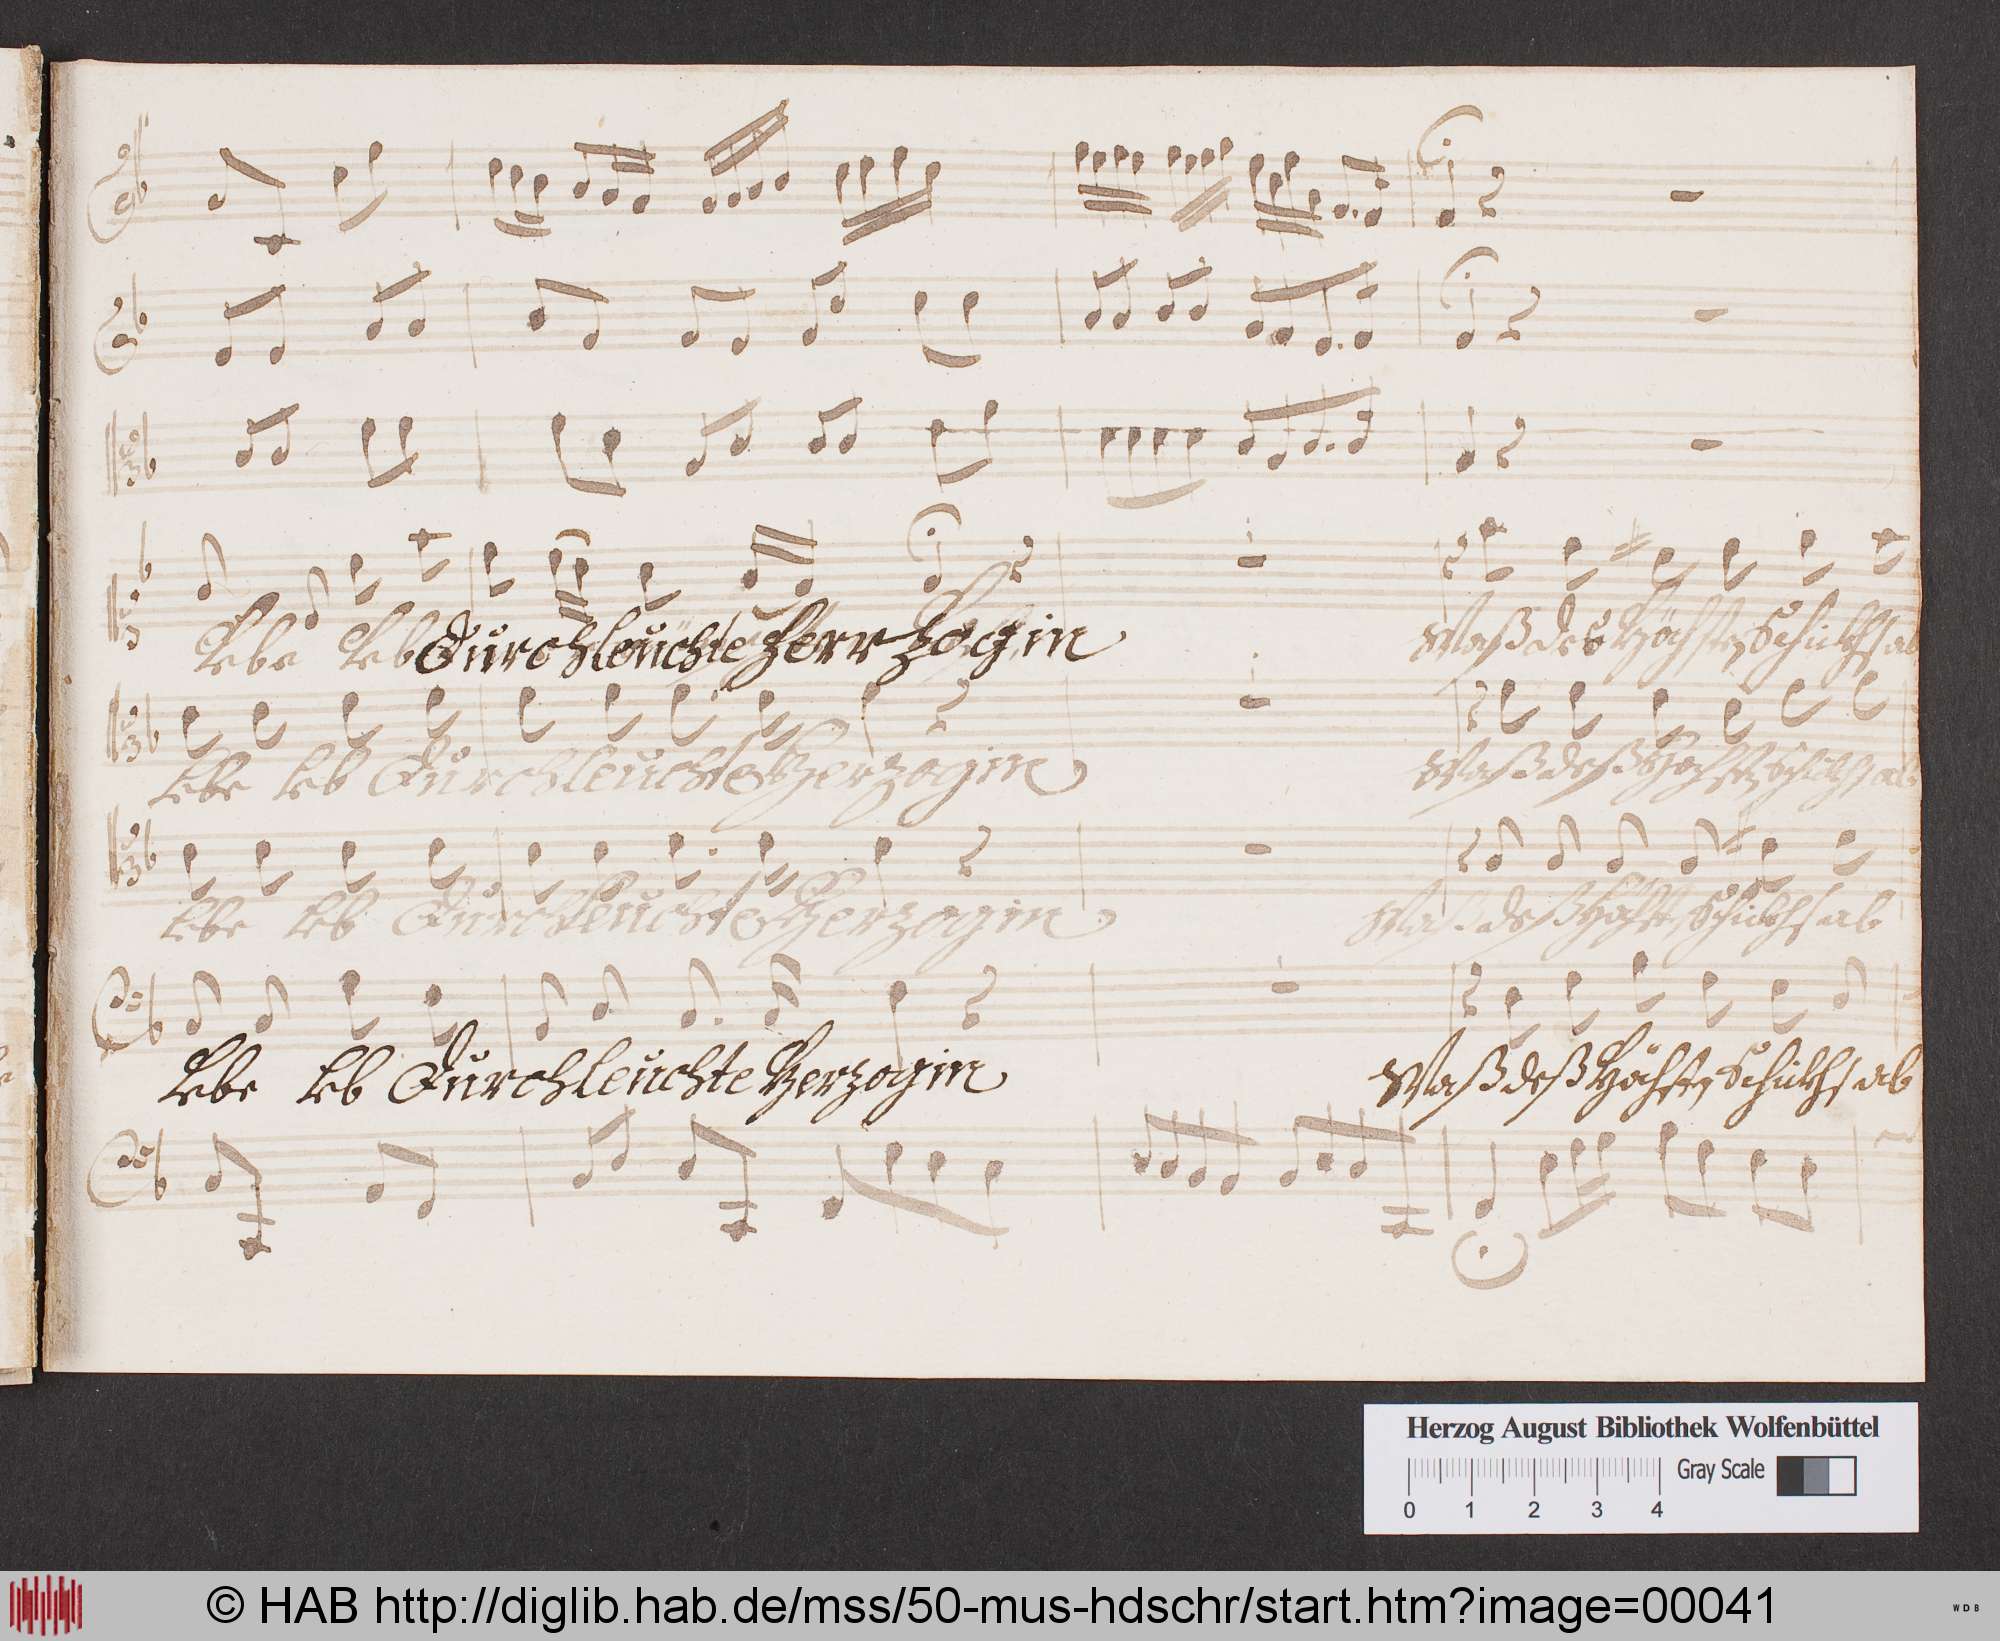 Lebe Leb Durchleuchte Herrzogin
Waß des Höchsten Schicksahl
Lebe Leb Durchleuchte Herzogin
Waß deß Höchsten Schicksahl
Lebe Leb Durchleuchte Herzogin
Waß deß Höchsten Schicksahl
Lebe Leb Durchleuchte Herzogin
Waß deß Höchsten Schicksahl
Herzog August Bibliothek Wolfenbüttel
Gray Scale
0 1 2 3 4
© HAB http://diglib.hab.de/mss/50-mus-hdschr/start.htm?image=00041
WDB